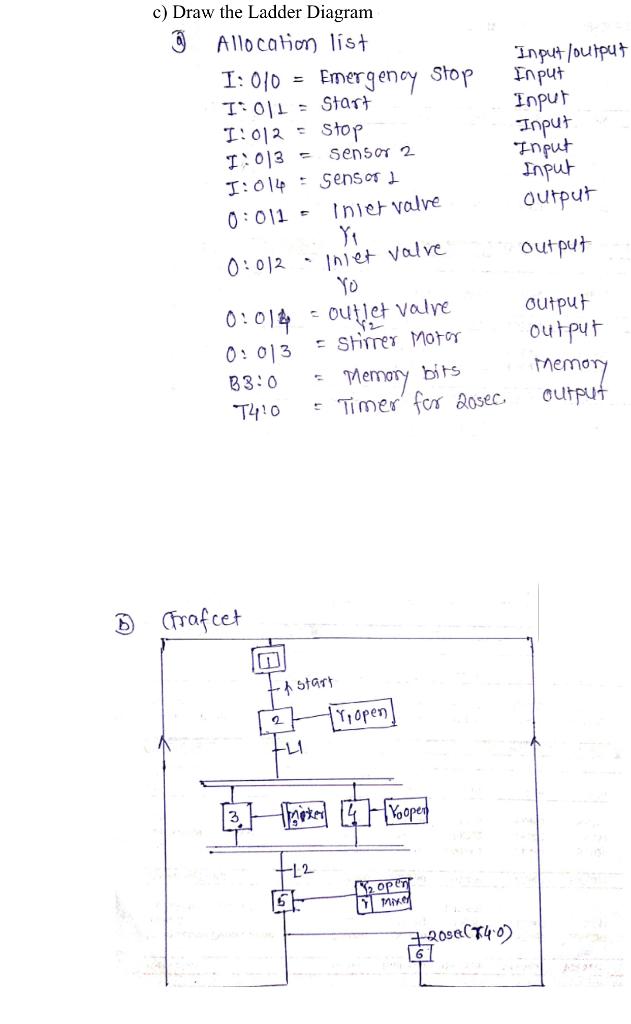 c) Draw the Ladder Diagram
a) Allocation list
Input/output
I: 0/0 = Emergency Stop Input
I: 0/1 = Start Input
I: 0/2 = Stop Input
I: 0/3 = Sensor 2 Input
I: 0/4 = Sensor 1 Input
O: 0/1 = Inlet valve output
Y1
O: 0/2 = Inlet valve output
Y0
O: 0/4 = outlet valve output
Y2
O: 0/3 = Stirrer Motor output
B3:0 = Memory bits Memory
T4:0 = Timer for 20sec output
b) Grafcet
1
↑ Start
2 Y1 open
L1
3 mixer 4 Y0 open
L2
5 Y2 open
Mixer
20sec(T4.0)
6